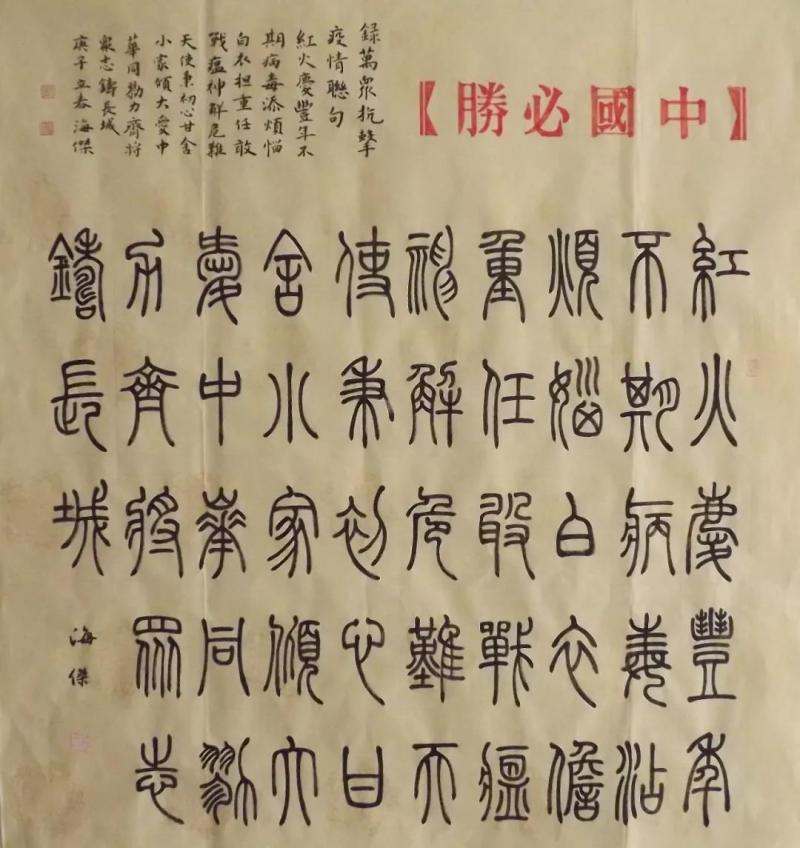 【中國必勝】
錄萬眾抗擊
疫情聯句
紅火慶豐年不
期病毒添煩惱
白衣担重任敢
戰瘟神解危難
天使秉初心甘舍
小家傾大愛中
華同勠力齊將
眾志鑄長城
庚子立春海傑
紅火慶豐年
不期病毒沾
煩惱白衣儋
重任敢戰瘟
神解危難天
使秉初心甘
舍小家傾大
愛中華同勠
力齊將眾志
鑄長城
海傑